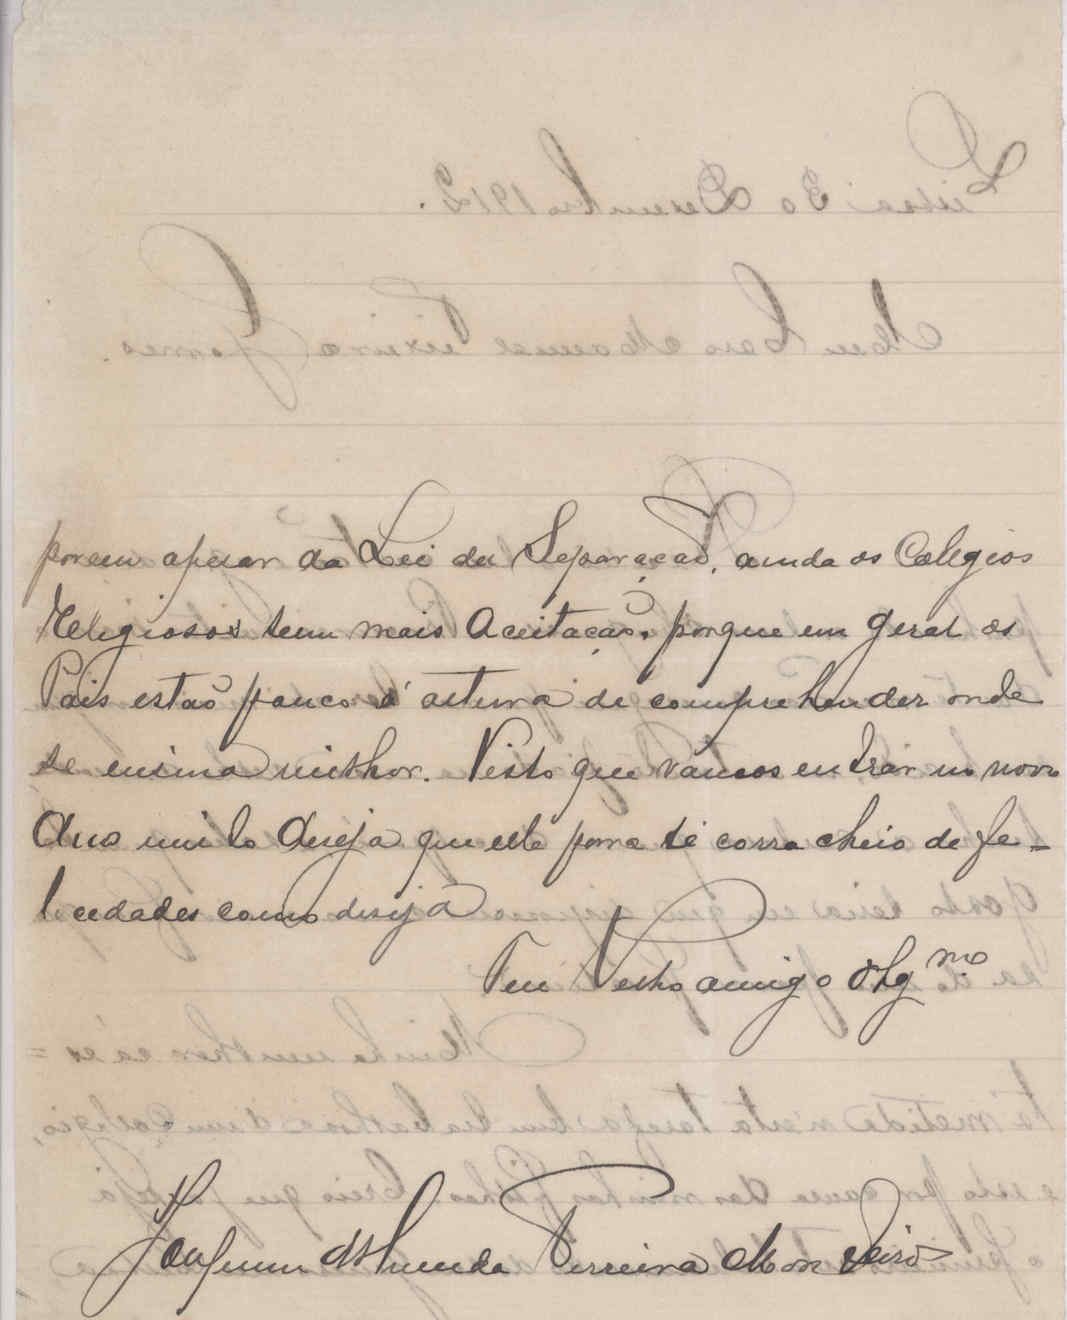 porem apesar da Lei da Separação, ainda os Colegios
Religiosos teem mais Aceitação, porque em geral os
Pais estão pouco á altura de comprehender onde
se ensina milhor. Visto que vâmos entrar no novo
Ano muito deseja que este para ti corra cheio de fe-
lecidades como deseja
Teu Velho amigo Obg.mo
Joaquim Almeida Ferreira Monteiro